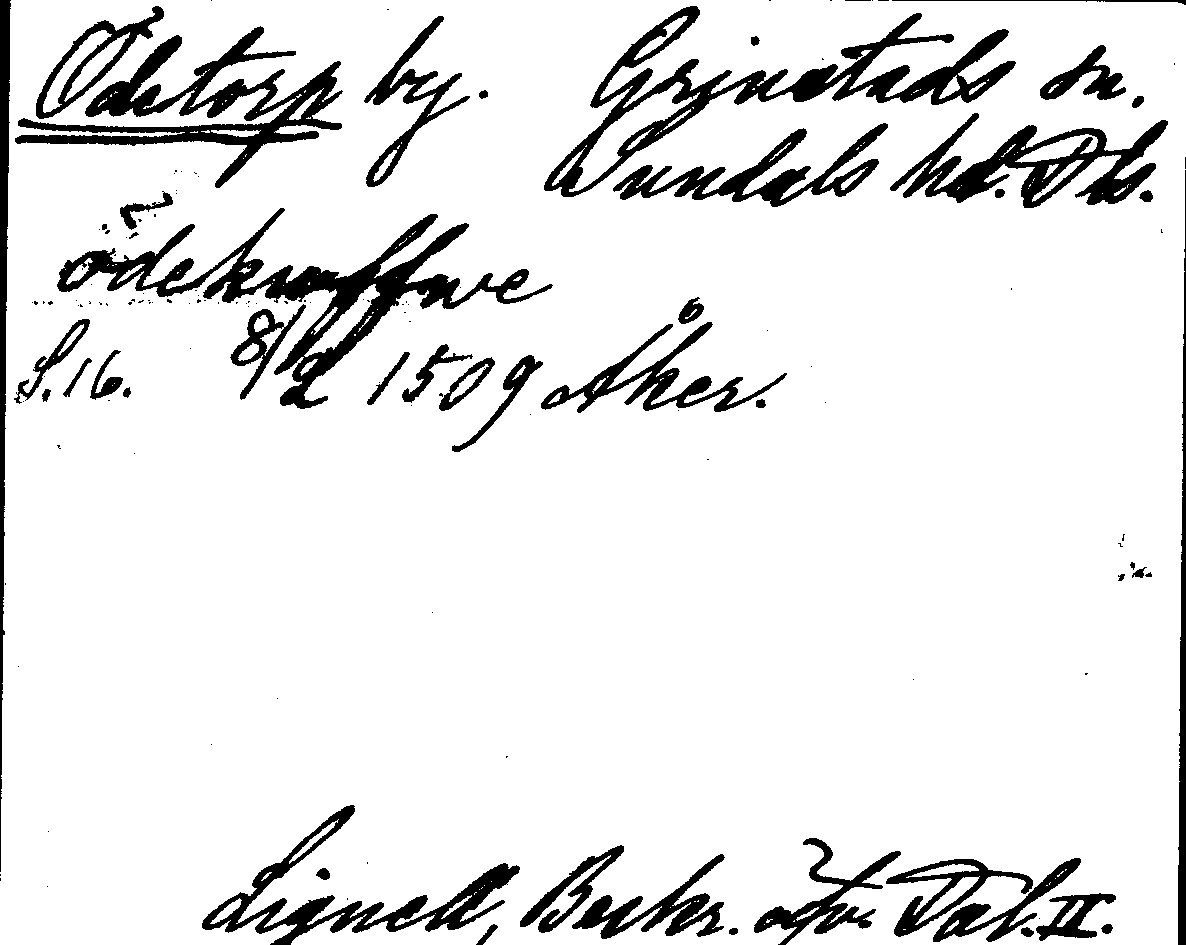 Ödetorp by. Grinstads sn.
Sundals hd. Dls.
ödekra
S.16. 8/2 1509 Åker.
Lignell, Beskr. öfv. Dal. II.